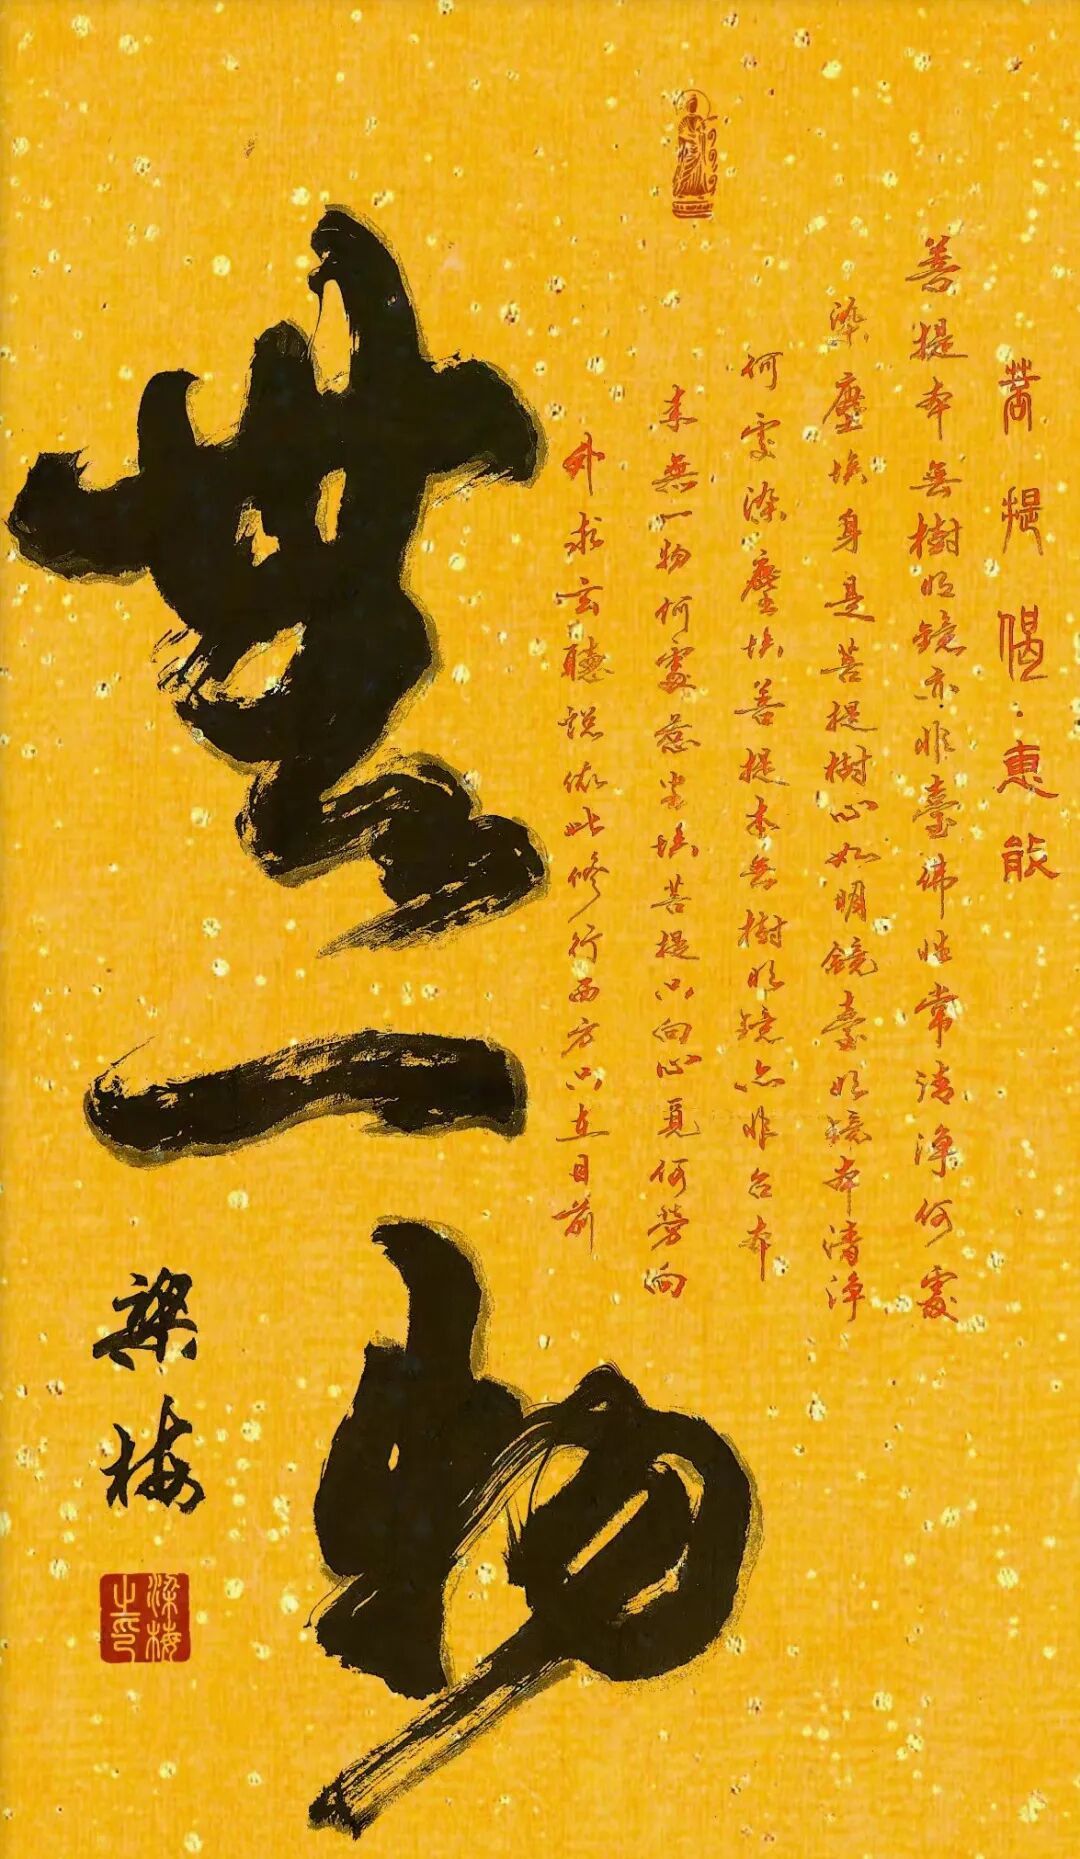 菩提偈·惠能
菩提本無樹明鏡亦非臺佛性常清淨何處
染塵埃身是菩提樹心如明鏡臺明鏡本清淨
何處染塵埃菩提本無樹明鏡亦非台本
来無一物何處惹塵埃菩提只向心覓何勞向
外求玄聽說依此修行西方只在目前
無一物
梁梅
梁梅之印